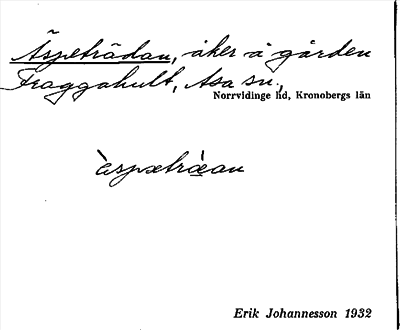 Äspeträdan, åker å gården
Fraggahult, Asa sn.,
Norrvidinge hd, Kronobergs län
àspæträ̀an
Erik Johannesson 1932